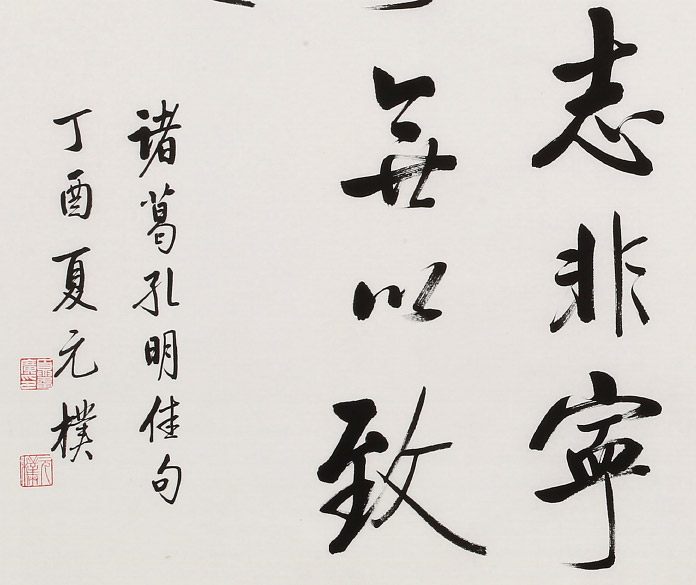 志非寧
無以致
諸葛孔明佳句
丁酉夏元樸